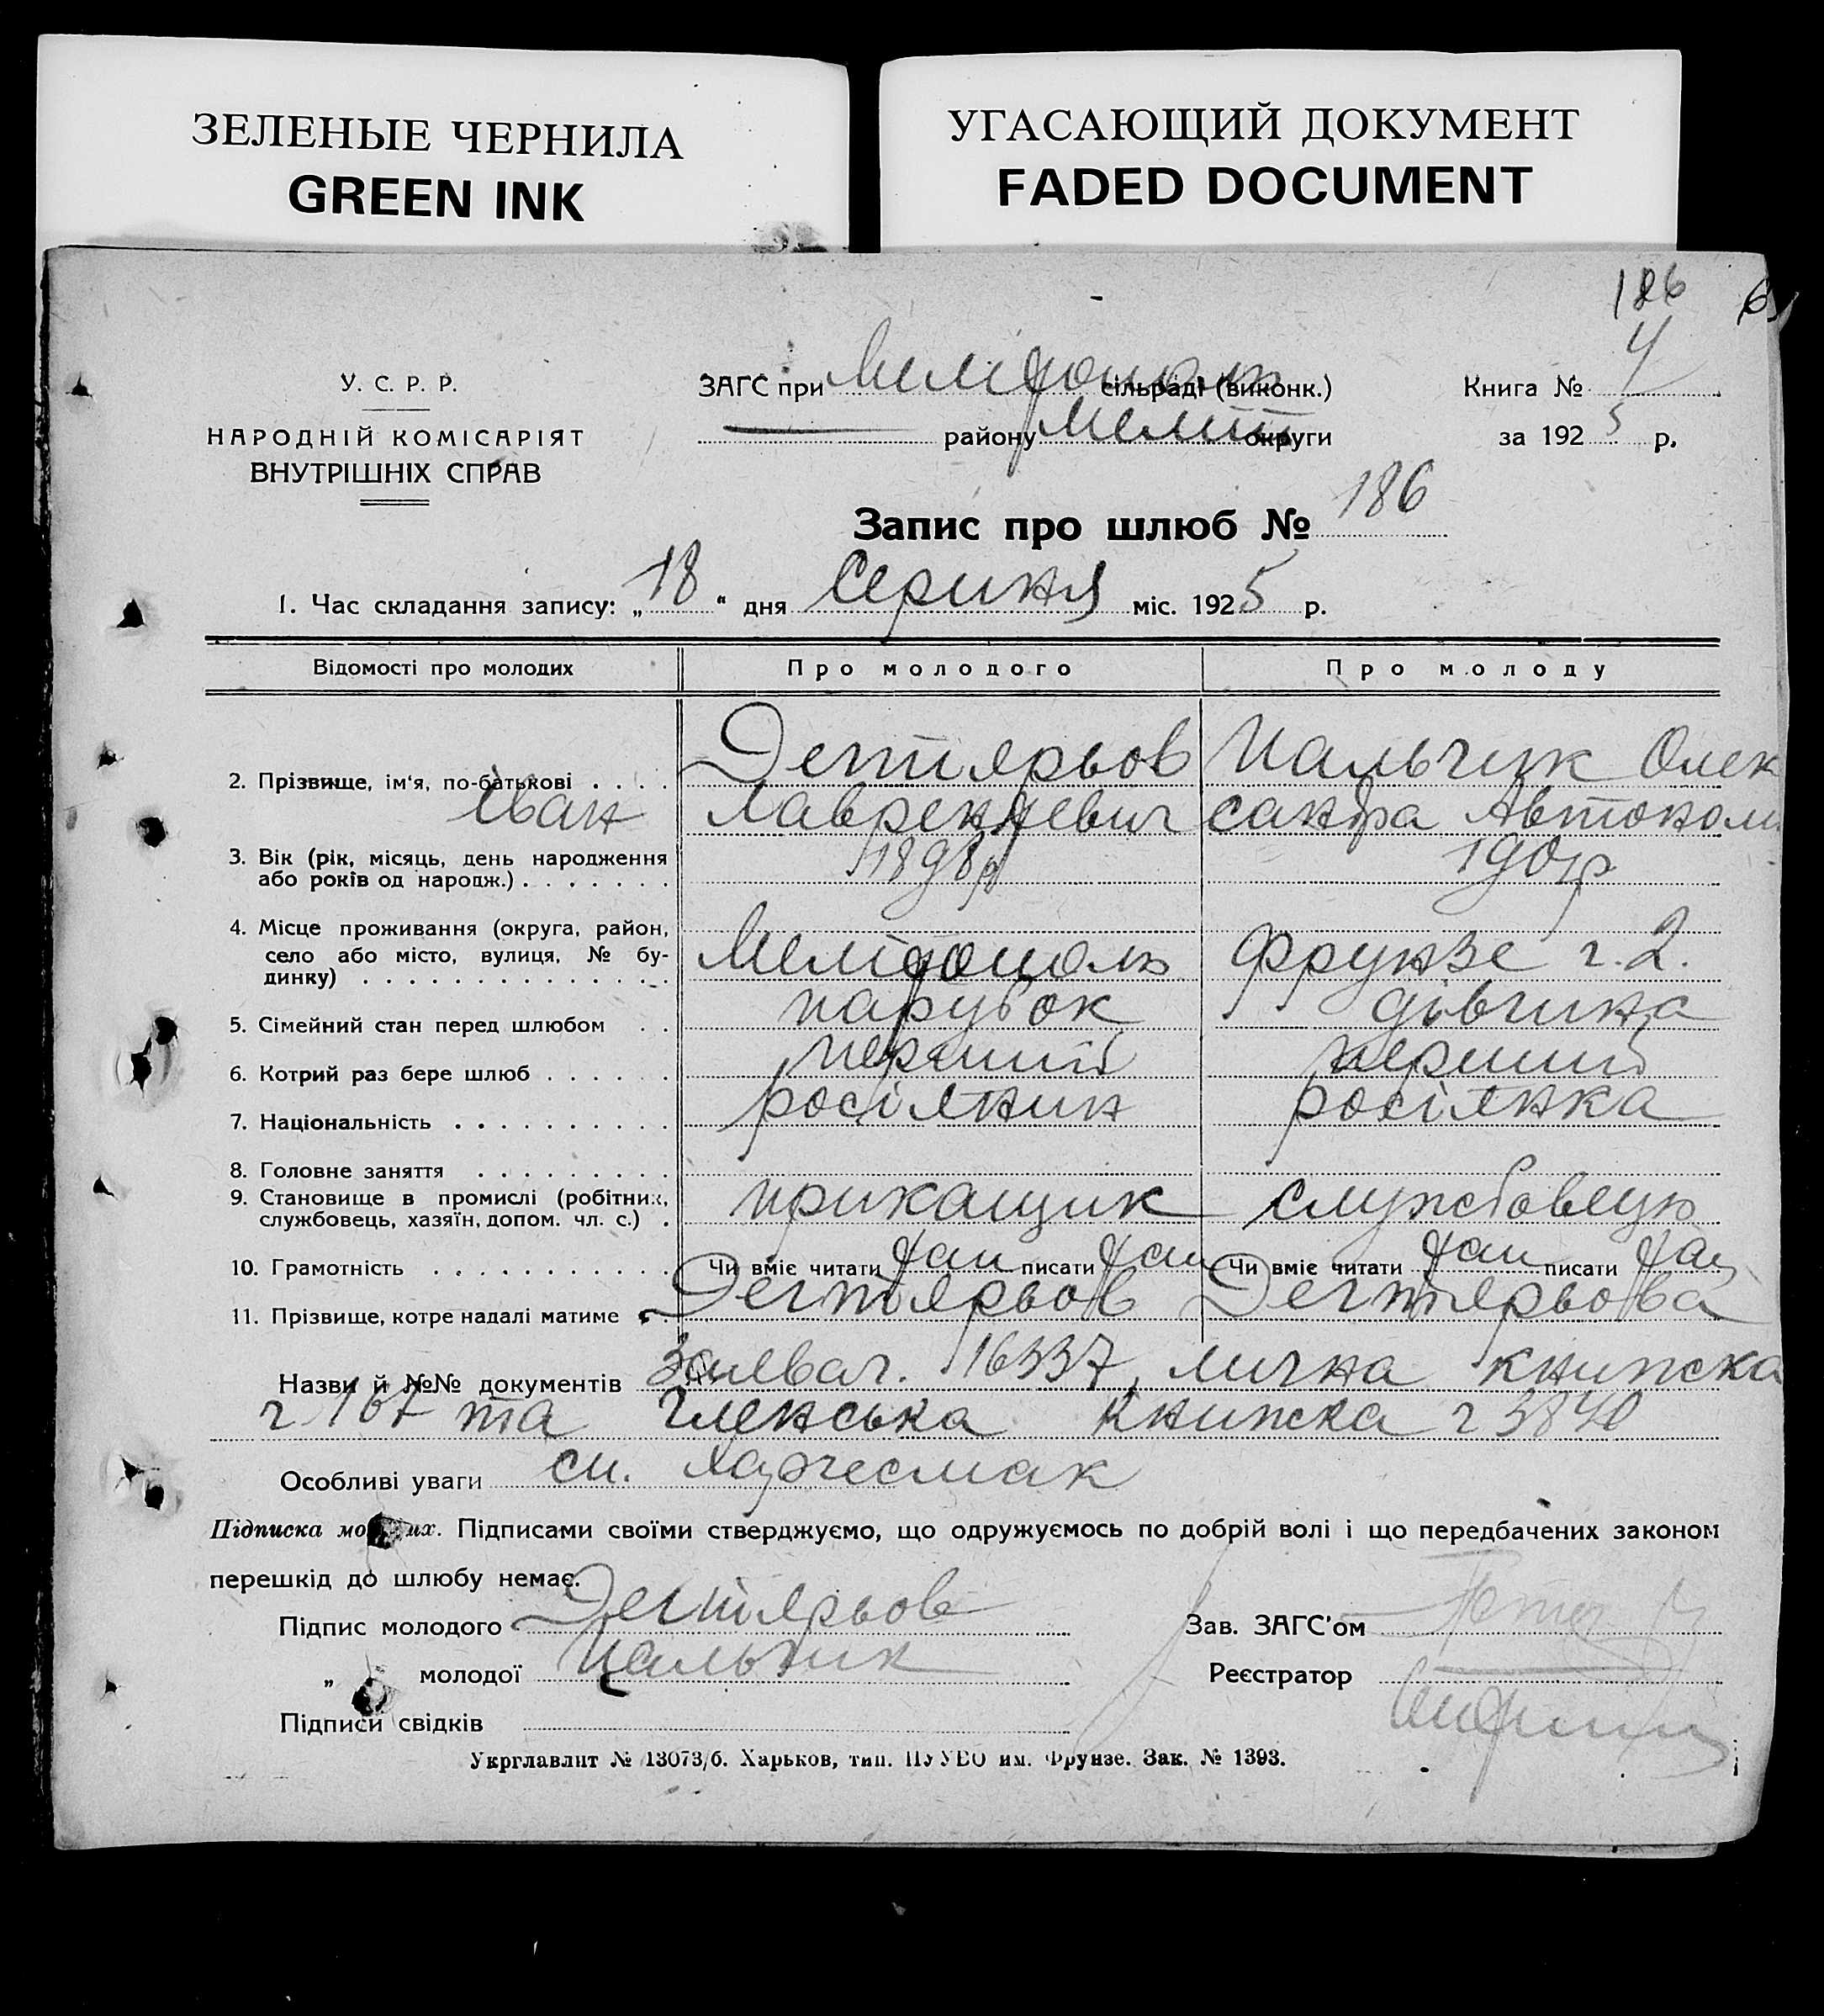 ЗЕЛЕНЫЕ ЧЕРНИЛА
GREEN INK
УГАСАЮЩИЙ ДОКУМЕНТ
FADED DOCUMENT
186
У. С. Р. Р.
НАРОДНІЙ КОМІСАРІЯТ
ВНУТРІШНІХ СПРАВ
ЗАГС при Мелітополь сільраді (виконк.)
району Меліт округи
Книга № 4
за 1925 р.
Запис про шлюб № 186
1. Час складання запису: „18“ дня Серпня міс. 1925 р.
Відомості про молодих Про молодого Про молоду
2. Прізвище, ім'я, по-батькові . . . . Дегтярьов Пальчик Олек
Іван Лаврентієвич сандра Автоном
3. Вік (рік, місяць, день народження 1898 р 1901 р
або років од народж.) . . . . . . .
4. Місце проживання (округа, район,
село або місто, вулиця, № бу- Мелітополь Фрунзе ч. 2.
динку) . . . . . . . . . . . . . .
5. Сімейний стан перед шлюбом . . парубок дівчина
6. Котрий раз бере шлюб . . . . . . перший перший
7. Національність . . . . . . . . . . росіянин росіянка
8. Головне заняття . . . . . . . . .
9. Становище в промислі (робітник, прикащик службовець
службовець, хазяїн, допом. чл. с.) .
10. Грамотність . . . . . . . . . . . Чи вміє читати так писати так Чи вміє читати так писати так
11. Прізвище, котре надалі матиме . . Дегтярьов Дегтярьова
Назви й №№ документів 16337, лична книжка
ч 167 та членська книжка ч 3840
Особливі уваги сп. Харчесмак
Підписка молодих. Підписами своїми стверджуємо, що одружуємось по добрій волі і що передбачених законом
перешкід до шлюбу немає.
Підпис молодого Дегтярьов
Зав. ЗАГС'ом
„ молодої Пальчик
Реєстратор
Підписи свідків
Укрглавлит № 13073/б. Харьков, тип. ПУУВО им. Фрунзе. Зак. № 1393.